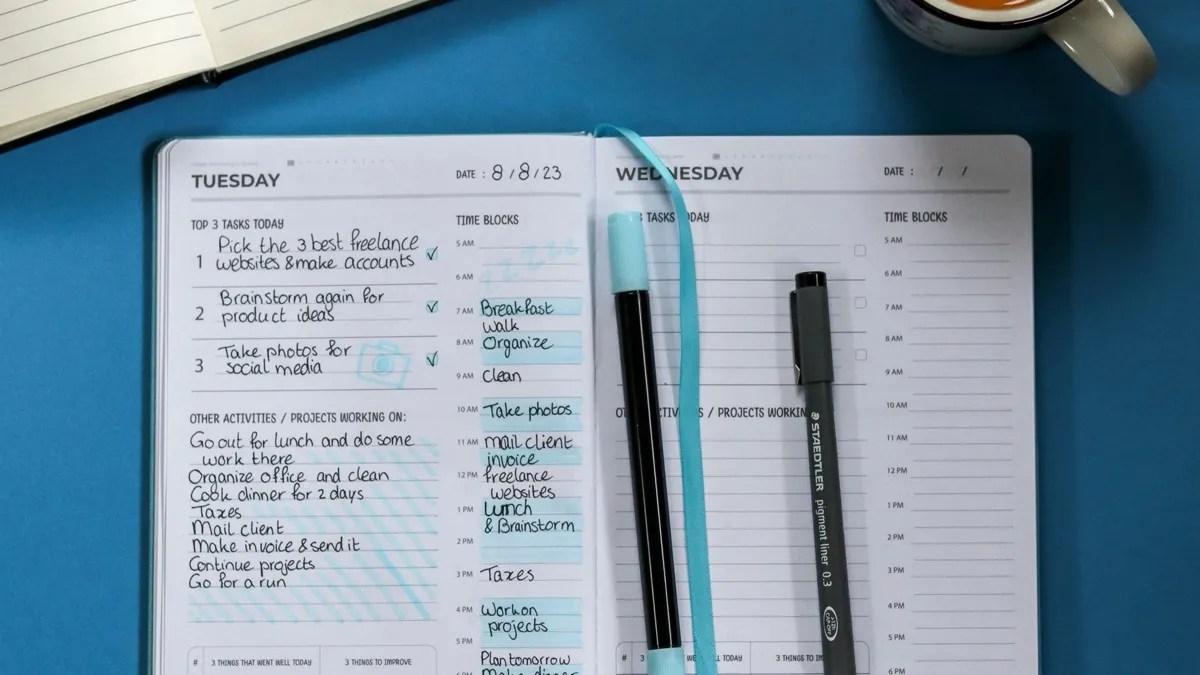 TUESDAY
DATE : 8 / 8 / 23
TOP 3 TASKS TODAY
1 Pick the 3 best freelance
websites & make accounts ✓
2 Brainstorm again for
product ideas ✓
3 Take photos for
social media ✓
OTHER ACTIVITIES / PROJECTS WORKING ON:
Go out for lunch and do some
work there
Organize office and clean
Cook dinner for 2 days
Taxes
Mail client
Make invoice & send it
Continue projects
Go for a run
# 3 THINGS THAT WENT WELL TODAY 3 THINGS TO IMPROVE
TIME BLOCKS
5 AM zzzzz
6 AM
7 AM Breakfast
walk
8 AM Organize
9 AM Clean
10 AM Take photos
11 AM mail client
invoice
12 PM freelance
websites
1 PM Lunch
& Brainstorm
2 PM
3 PM Taxes
4 PM Work on
projects
5 PM
Plan tomorrow
Make dinner
WEDNESDAY
DATE : / /
3 TASKS TODAY
ACTIVITIES / PROJECTS WORKIN
# LL TODAY 3 THINGS TO IM
TIME BLOCKS
5 AM
6 AM
7 AM
8 AM
9 AM
10 AM
11 AM
12 PM
1 PM
2 PM
3 PM
4 PM
5 PM
6 PM
STAEDTLER pigment liner 0.3